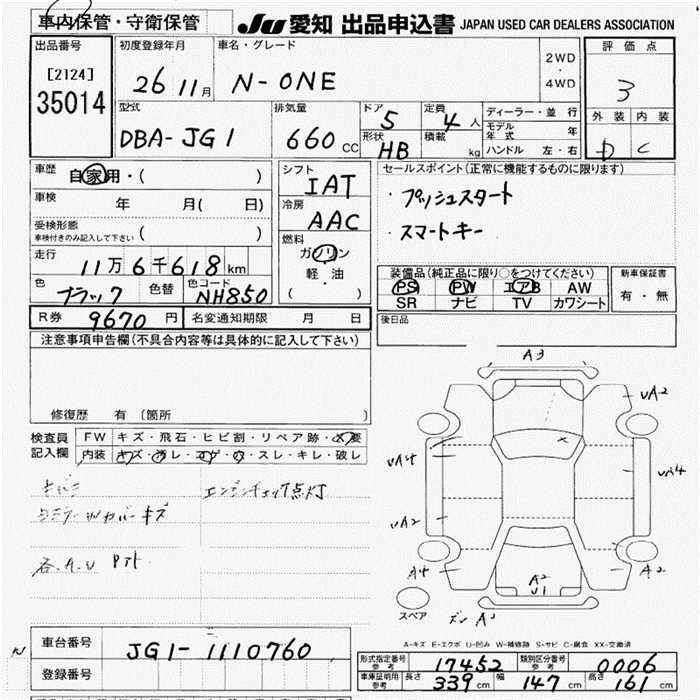 車内保管・守衛保管 JU 愛知 出品申込書 JAPAN USED CAR DEALERS ASSOCIATION
出品番号 初度登録年月 車名・グレード 2WD・4WD 評価点
[2124]
35014 26 11月 N-ONE 3
型式 排気量 ドア 5 定員 4人 ディーラー・並行 外装 内装
DBA-JG1 660cc 形状 HB 積載 kg モデル年式 年 D C
ハンドル 左・右
車歴 自家用・( ) シフト IAT セールスポイント(正常に機能するものに限ります)
車検 年 月( 日) 冷房 AAC ・プッシュスタート
受検形態 ・スマートキー
車検付きのみ記入して下さい 燃料 ガソリン
走行 11万6千618km 軽・油
( )
装備品(純正品に限り○をつけてください) 新車保証書
色 ブラック 色替 色コード NH850 PS PW エアB AW 有・無
SR ナビ TV カワシート
R券 9670円 名変通知期限 月 日 後日品
注意事項申告欄(不具合内容等は具体的に記入して下さい)
修復歴 有 (箇所 )
検査員記入欄 FW キズ・飛石・ヒビ割・リペア跡・✕要
内装 キズ・汚レ・コゲ・穴・スレ・キレ・破レ
エンジンチェック点灯
ミラーWカバーキズ
各.A.U
A3
UA2
UA4
UA4
UA2
A4
A2
A2
U1
スペア
A3
A-キズ E-エクボ U-凹み W-補修跡 S-サビ C-腐食 XX-交換済
車台番号 JG1-1110760
登録番号
形式指定番号 参考 17452 類別区分番号 参考 0006
車庫証明用 参考 長さ 339cm 幅 147cm 高さ 161cm